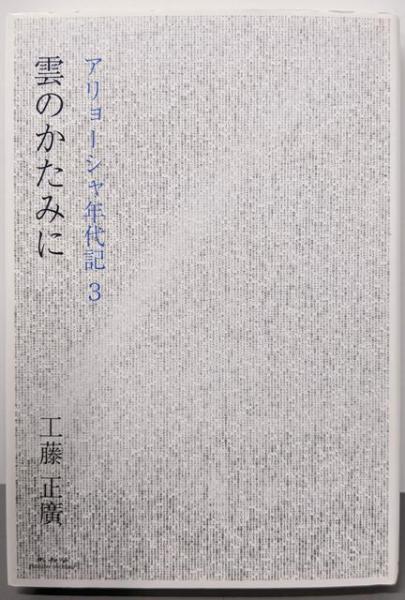 アリョーシャ年代記 3
雲のかたみに
工藤正廣